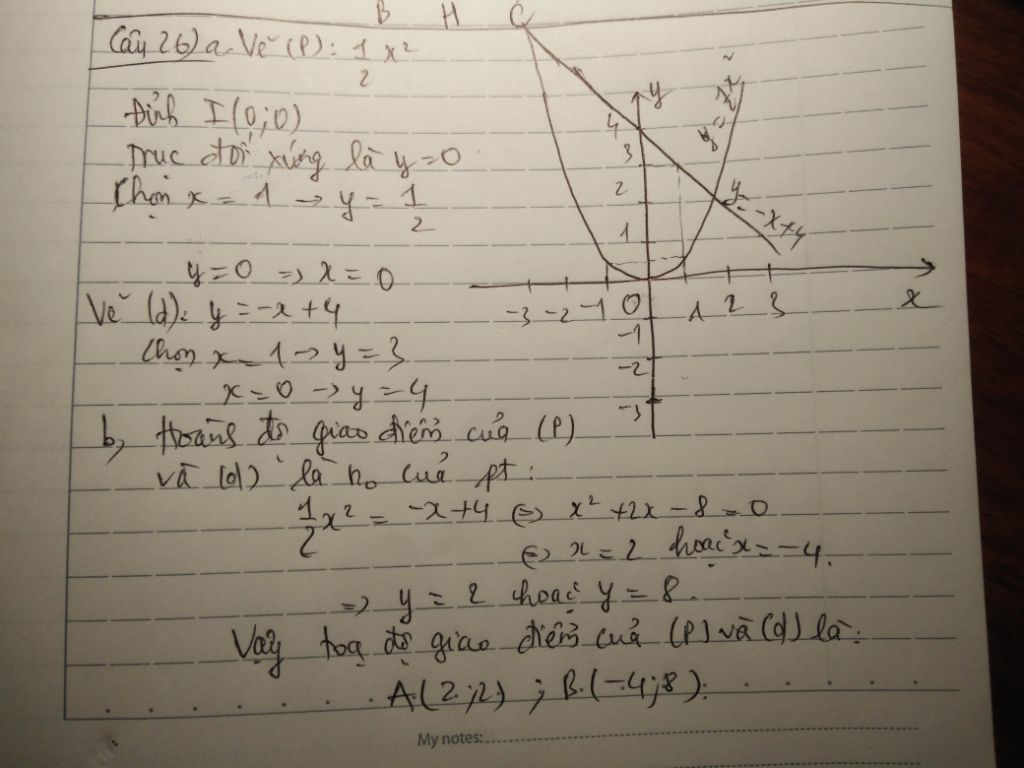 B H C
Câu 26) a. Vẽ (P): 1/2 x²
Đỉnh I(0;0)
Trục đối xứng là y=0
Chọn x = 1 → y = 1/2
y=0 => x = 0
Vẽ (d): y = -x+4
Chọn x = 1 → y = 3
x=0 → y=4
y
4
3
2
1
-3 -2 -1 0 1 2 3 x
-1
-2
-3
y=-x+4
b, Hoành độ giao điểm của (P)
và (d) là no của pt:
1/2 x² = -x+4 <=> x² +2x -8 = 0
<=> x = 2 hoặc x = -4.
=> y = 2 hoặc y = 8.
Vậy toạ độ giao điểm của (P) và (d) là:
A(2;2) ; B(-4;8).
My notes: